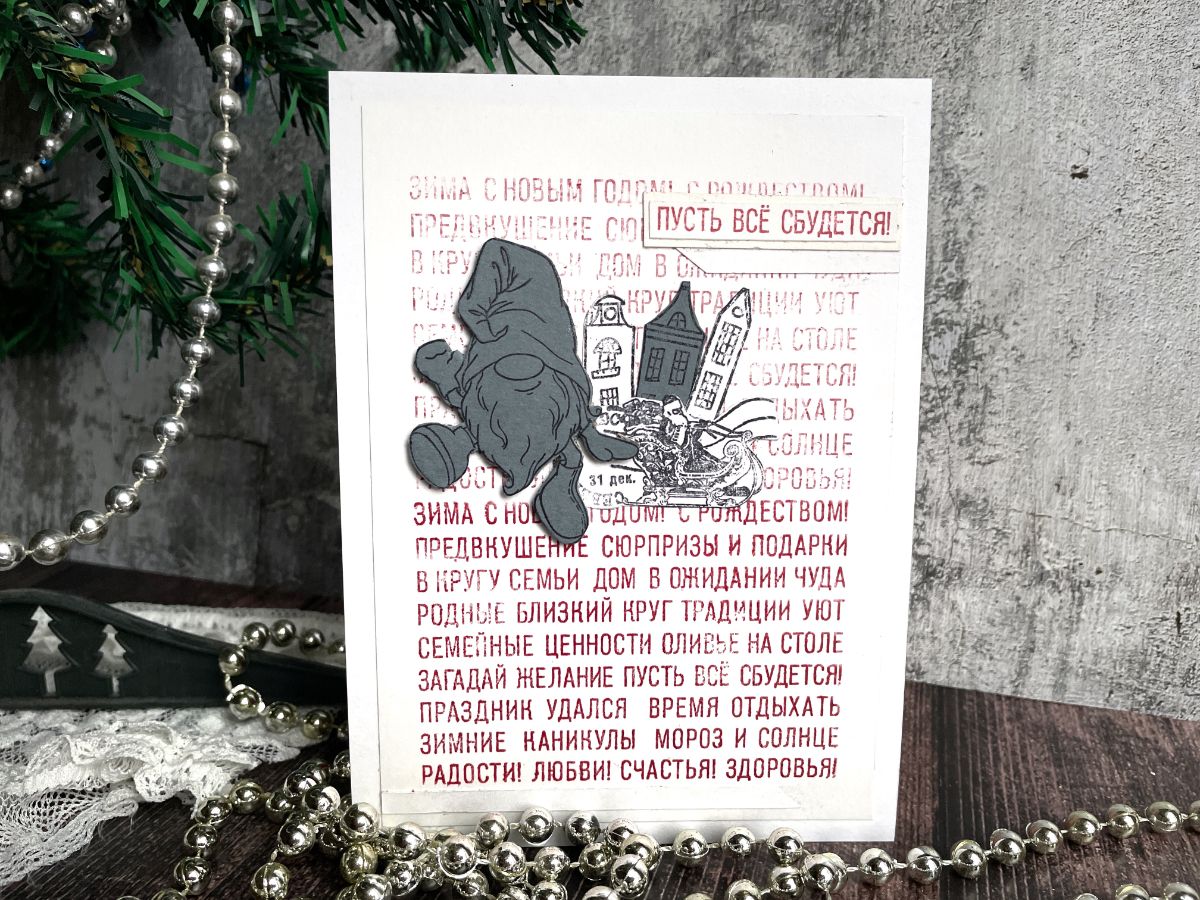 ЗИМА С НОВЫМ ГОДОМ! С РОЖДЕСТВОМ!
ПУСТЬ ВСЁ СБУДЕТСЯ!
ПРЕДВКУШЕНИЕ
В ДОМ В ОЖИДАНИИ ЧУДА
КРУГ ТРАДИЦИИ УЮТ
НА СТОЛЕ
СБУДЕТСЯ!
СОЛНЦЕ
31 дек.
ЗИМА С ГОДОМ! С РОЖДЕСТВОМ!
ПРЕДВКУШЕНИЕ СЮРПРИЗЫ И ПОДАРКИ
В КРУГУ СЕМЬИ ДОМ В ОЖИДАНИИ ЧУДА
РОДНЫЕ БЛИЗКИЙ КРУГ ТРАДИЦИИ УЮТ
СЕМЕЙНЫЕ ЦЕННОСТИ ОЛИВЬЕ НА СТОЛЕ
ЗАГАДАЙ ЖЕЛАНИЕ ПУСТЬ ВСЁ СБУДЕТСЯ!
ПРАЗДНИК УДАЛСЯ ВРЕМЯ ОТДЫХАТЬ
ЗИМНИЕ КАНИКУЛЫ МОРОЗ И СОЛНЦЕ
РАДОСТИ! ЛЮБВИ! СЧАСТЬЯ! ЗДОРОВЬЯ!